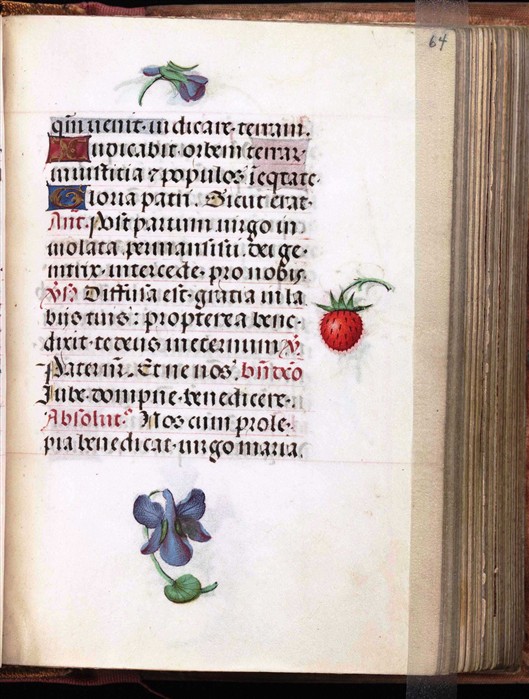 64
qm̄ uenit · iudicare · terram.
Iudicabit · orbem terrar
iniusticia ⁊ populos īeq̄tate·
Gloria patri. Sicut erat·
Ant. Post partum uirgo in
uiolata permansisti. dei ge·
nitrix · intercede · pro nobis.
Ys̄. Diffusa est · gracia in la
bijs tuis : propterea bene·
dixit · te deus in eternum. Y.
Pater nr̄. Et ne nos. bn̄dcō
Iube · dompne · benedicere.
Absolut° Nos cum prole·
pia benedicat · uirgo maria.